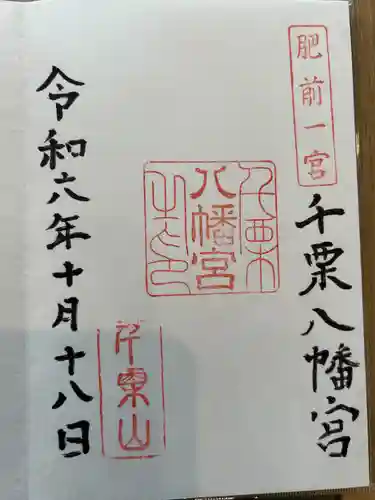 肥前一宮
千栗八幡宮
千栗
八幡宮
之印
千栗山
令和六年十月十八日